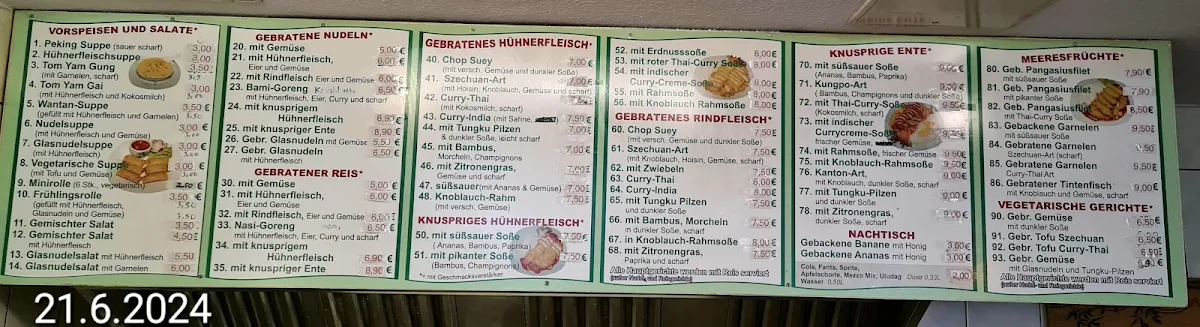 VORSPEISEN UND SALATE*
1. Peking Suppe (sauer scharf) 3,00
2. Hühnerfleischsuppe 3,00
3. Tom Yam Gung
(mit Garnelen, scharf)
4. Tom Yam Gai
(mit Hühnerfleisch und Kokosmilch)
5. Wantan-Suppe 3,50 €
(gefüllt mit Hühnerfleisch und Garnelen)
6. Nudelsuppe 3,00 €
(mit Hühnerfleisch und Gemüse)
7. Glasnudelsuppe 3,00 €
(mit Hühnerfleisch)
8. Vegetarische Suppe 3,00 €
(mit Tofu und Gemüse)
9. Minirolle (6 Stk., vegetarisch)
10. Frühlingsrolle 3,50 €
(gefüllt mit Hühnerfleisch,
Glasnudeln und Gemüse)
11. Gemischter Salat 3,50 €
12. Gemischter Salat 4,50 €
mit Hühnerfleisch
13. Glasnudelsalat mit Hühnerfleisch 5,50
14. Glasnudelsalat mit Garnelen 6,00
GEBRATENE NUDELN*
20. mit Gemüse 5,00 €
21. mit Hühnerfleisch, 6,00 €
Eier und Gemüse
22. mit Rindfleisch Eier und Gemüse 6,00 €
23. Bami-Goreng 6,50 €
mit Hühnerfleisch, Eier, Curry und scharf
24. mit knusprigen
Hühnerfleisch 6,90 €
25. mit knuspriger Ente 8,90 €
26. Gebr. Glasnudeln mit Gemüse 5,50 €
27. Gebr. Glasnudeln 6,50 €
mit Hühnerfleisch
GEBRATENER REIS*
30. mit Gemüse 5,00 €
31. mit Hühnerfleisch, 6,00 €
Eier und Gemüse
32. mit Rindfleisch, Eier und Gemüse 6,00
33. Nasi-Goreng 6,50 €
mit Hühnerfleisch, Eier, Curry und scharf
34. mit knusprigem
Hühnerfleisch 6,90 €
35. mit knuspriger Ente 8,90 €
GEBRATENES HÜHNERFLEISCH*
40. Chop Suey 7,00 €
(mit versch, Gemüse und dunkler Soße)
41. Szechuan-Art
(mit Hoisin, Knoblauch, Gemüse und scharf)
42. Curry-Thai
(mit Kokosmilch, scharf)
43. Curry-India (mit Sahne, 7,50 €
44. mit Tungku Pilzen 7,50 €
& dunkler Soße, leicht scharf
45. mit Bambus, 7,00 €
Morcheln, Champignons
46. mit Zitronengras, 7,50 €
Gemüse und scharf
47. süßsauer (mit Ananas & Gemüse) 7,00 €
48. Knoblauch-Rahm 7,50 €
(mit versch. Gemüse)
KNUSPRIGES HÜHNERFLEISCH*
50. mit süßsauer Soße 7,00 €
( Ananas, Bambus, Paprika)
51. mit pikanter Soße 7,50 €
(Bambus, Champignons)
*= mit Geschmacksverstärker
52. mit Erdnusssoße 8,00 €
53. mit roter Thai-Curry Soße 8,00 €
54. mit indischer
Curry-Creme-Soße 8,00 €
55. mit Rahmsoße 8,00 €
56. mit Knoblauch Rahmsoße 8,00 €
GEBRATENES RINDFLEISCH*
60. Chop Suey 7,50 €
mit versch. Gemüse und dunkler Soße
61. Szechuan-Art 7,50 €
mit Knoblauch, Hoisin, Gemüse, scharf
62. mit Zwiebeln 7,50 €
63. Curry-Thai
64. Curry-India 8,00 €
65. mit Tungku Pilzen 7,50 €
und dunkler Soße
66. mit Bambus, Morcheln 7,50 €
67. in Knoblauch-Rahmsoße 8,00 €
68. mit Zitronengras, 7,50 €
Paprika und scharf
Alle Hauptgerichte werden mit Reis serviert
(außer Nudel- und Reisgerichte)
KNUSPRIGE ENTE*
70. mit süßsauer Soße 9,00 €
(Ananas, Bambus, Paprika)
71. Kungpo-Art
( Bambus, Champignons und dunkler Soße)
72. mit Thai-Curry-Soße 9,50 €
(Kokosmilch, scharf)
73. mit indischer
Currycreme-Soße
mit frischer Gemüse
74. mit Rahmsoße, frischer Gemüse 9,50 €
75. mit Knoblauch-Rahmsoße 9,50 €
76. Kanton-Art, 9,00 €
mit Knoblauch, dunkler Soße, scharf
77. mit Tungku-Pilzen 9,00 €
und dunkler Soße
78. mit Zitronengras, 9,00 €
dunkler Soße, scharf
NACHTISCH
Gebackene Banane mit Honig 3,00 €
Gebackene Ananas mit Honig 3,00 €
Cola, Fanta, Sprite,
Apfelschorle, Mezzo Mix, Uludag Dose 0,33L 2,00
Wasser 0,50L
MEERESFRÜCHTE*
80. Geb. Pangasiusfilet 7,90 €
mit süßsauer Soße
81. Geb. Pangasiusfilet 7,90
mit pikanter Soße
82. Geb. Pangasiusfilet 8,50 €
mit Thai-Curry Soße
83. Gebackene Garnelen 9,50 €
mit süßsauer Soße
84. Gebratene Garnelen
Szechuan-Art (scharf)
85. Gebratene Garnelen 9,50 €
Curry-Thai Art
86. Gebratener Tintenfisch 9,00 €
mit Knoblauch und Gemüse, scharf
VEGETARISCHE GERICHTE*
90. Gebr. Gemüse 6,50 €
in dunkler Soße
91. Gebr. Tofu Szechuan 6,50 €
92. Gebr. Tofu Curry-Thai 6,90 €
93. Gebr. Tofu
mit Glasnudeln und Tungku-Pilzen
Alle Hauptgerichte werden mit Reis serviert
(außer Nudel- und Reisgerichte)
21.6.2024